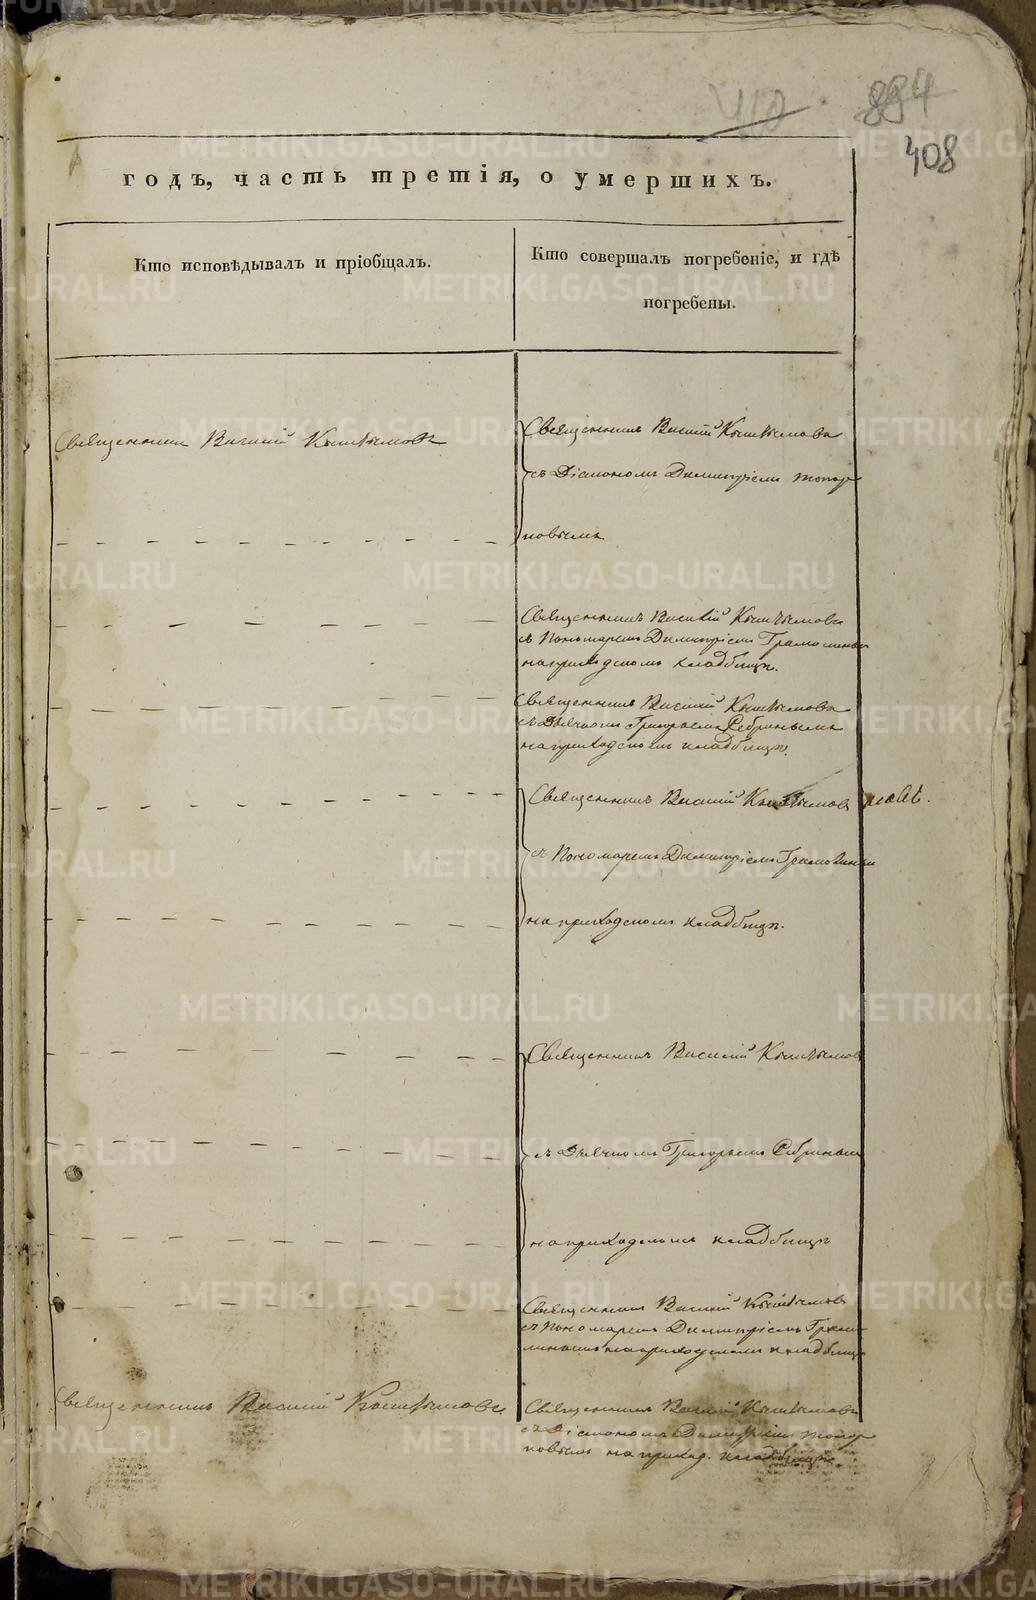 410 894
408
годъ, часть третія, о умершихъ.
Кто исповѣдывалъ и пріобщалъ.
Кто совершалъ погребеніе, и гдѣ
погребены.
Священникъ Василій Кыштымовъ
Священникъ Василій Кыштымовъ
съ Діакономъ Димитріемъ Топор
ковымъ
Священникъ Василій Кыштымовъ
съ Пономаремъ Димитріемъ
на приходскомъ кладбищѣ.
Священникъ Василій Кыштымовъ
съ Дьячкомъ Григорьемъ
на приходскомъ кладбищѣ.
Священникъ Василій Кыштымовъ
съ Пономаремъ Димитріемъ
на приходскомъ кладбищѣ.
Священникъ Василій Кыштымовъ
съ Дьячкомъ Григорьемъ
на приходскомъ кладбищѣ
Священникъ Василій Кыштымовъ
съ Пономаремъ Димитріемъ
на приходскомъ кладбищѣ
Священникъ Василій Кыштымовъ
Священникъ Василій Кыштымовъ
съ Діакономъ Димитріемъ Топор
ковымъ на приход. кладбищѣ
METRIKI.GASO-URAL.RU